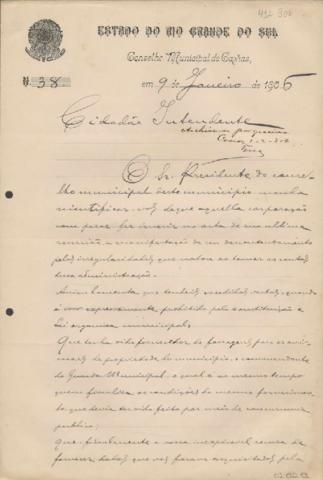 ESTADO DO RIO GRANDE DO SUL
Conselho Municipal de Caxias,
N. 38 em 9 de Janeiro de 1906
Cidadão Intendente
O Sr. Presidente do conse-
lho municipal deste municipio manda
scientificar-vos de que aquella corporação
fez inserir na acta de sua ultima
reunião a manifestação de seu descontentamento
pelas irregularidades que notou ao tomar as contas
tua administração.
que tendes vendido, quando
é isso expressamente prohibido pela constituição e
Lei organica municipal;
Que tenha sido fornecedor de forragens para os ani-
maes de propriedade do municipio, o commandante
da Guarda Municipal, o qual é ao mesmo tempo
quem fiscaliza as condições do mesmo fornecimen-
to, que devia ter sido feito por meio de concurrencia
publica;
Que, finalmente a vossa recusa de
fornecer dados que vos foram requisitados pela